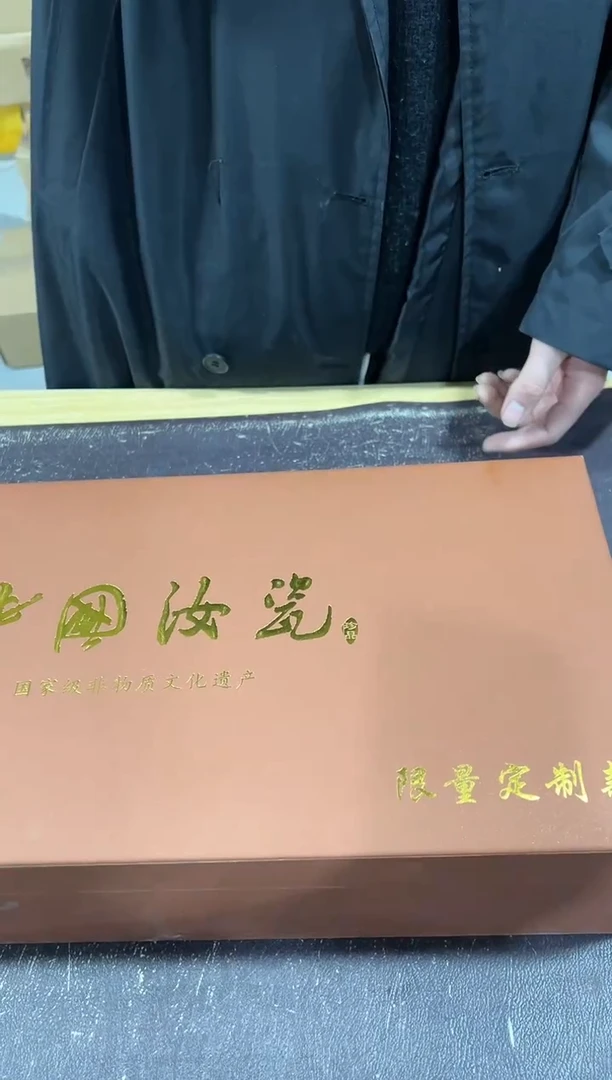 中國汝瓷
国家级非物质文化遗产
限量定制款